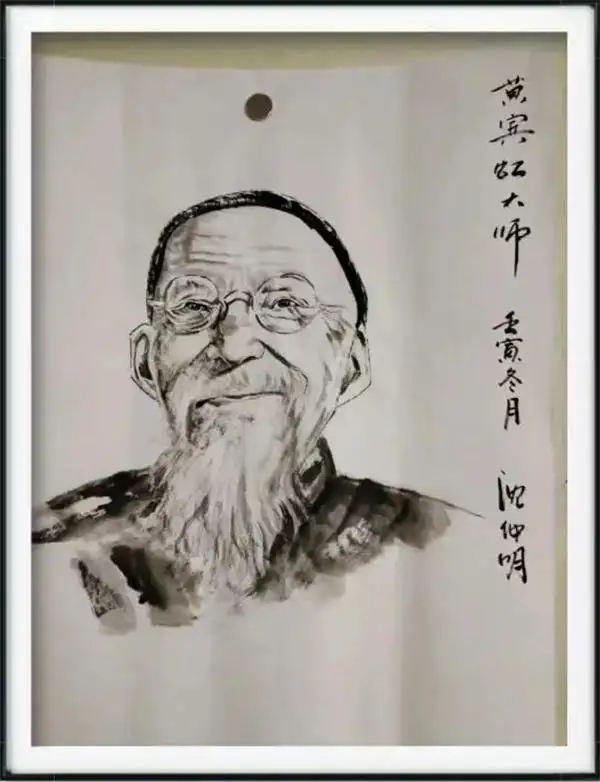 黄宾虹大师 壬寅冬月 沈仲明